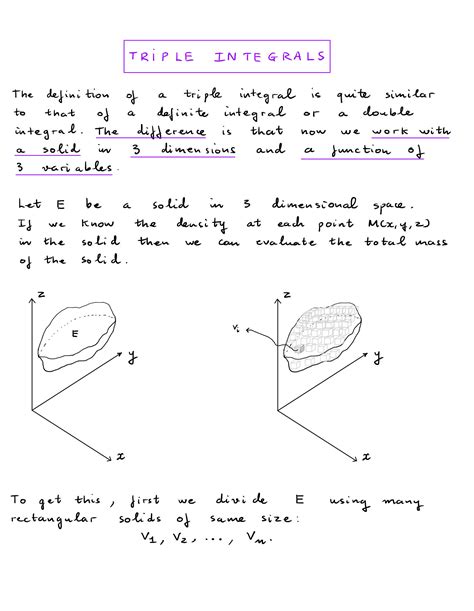 TRIPLE INTEGRALS
The definition of a triple integral is quite similar
to that of a definite integral or a double
integral. The difference is that now we work with
a solid in 3 dimensions and a function of
3 variables.
Let E be a solid in 3 dimensional space.
If we know the density at each point M(x,y,z)
in the solid then we can evaluate the total mass
of the solid.
z
E
y
x
z
Vi
y
x
To get this, first we divide E using many
rectangular solids of same size:
V1, V2, ..., Vn.